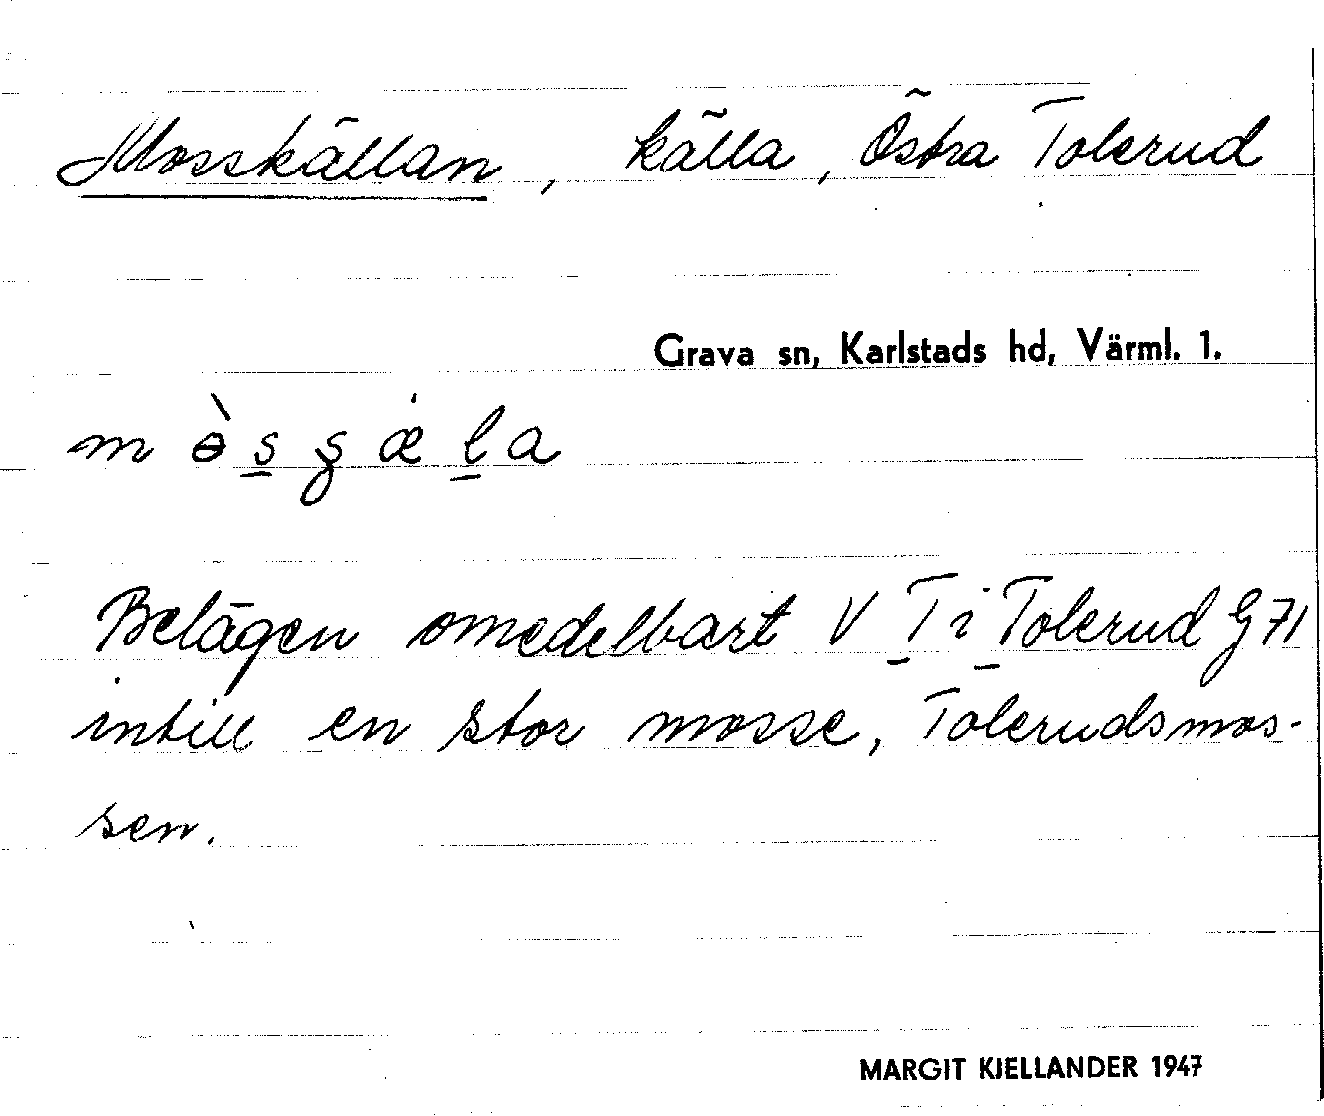 Mosskällan, källa, Östra Tolerud
Grava sn, Karlstads hd, Värml. 1.
Belägen omedelbart V T i Tolerud G 71
intill en stor mosse, Tolerudsmos-
sen.
MARGIT KJELLANDER 1947